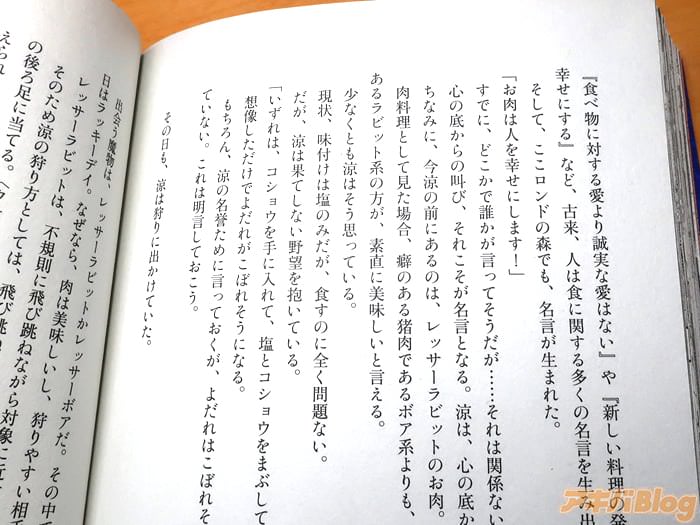 『食べ物に対する愛より誠実な愛はない』や『新しい料理の発
幸せにする』など、古来、人は食に関する多くの名言を生み出
そして、ここロンドの森でも、名言が生まれた。
「お肉は人を幸せにします！」
すでに、どこかで誰かが言ってそうだが……それは関係ない
心の底からの叫び、それこそが名言となる。涼は、心の底か
ちなみに、今涼の前にあるのは、レッサーラビットのお肉。
肉料理として見た場合、癖のある猪肉であるボア系よりも、
あるラビット系の方が、素直に美味しいと言える。
少なくとも涼はそう思っている。
現状、味付けは塩のみだが、食すのに全く問題ない。
だが、涼は果てしない野望を抱いている。
「いずれは、コショウを手に入れて、塩とコショウをまぶして
想像しただけでよだれがこぼれそうになる。
もちろん、涼の名誉ために言っておくが、よだれはこぼれそ
ていない。これは明言しておこう。
その日も、涼は狩りに出かけていた。
出会う魔物は、レッサーラビットかレッサーボアだ。その中で
日はラッキーデイ。なぜなら、肉は美味しいし、狩りやすい相手
レッサーラビットは、不規則に飛び跳ねながら対象に近
そのため涼の狩り方としては、飛び跳ね
の後ろ足に当てる。
えられ
アキバBlog